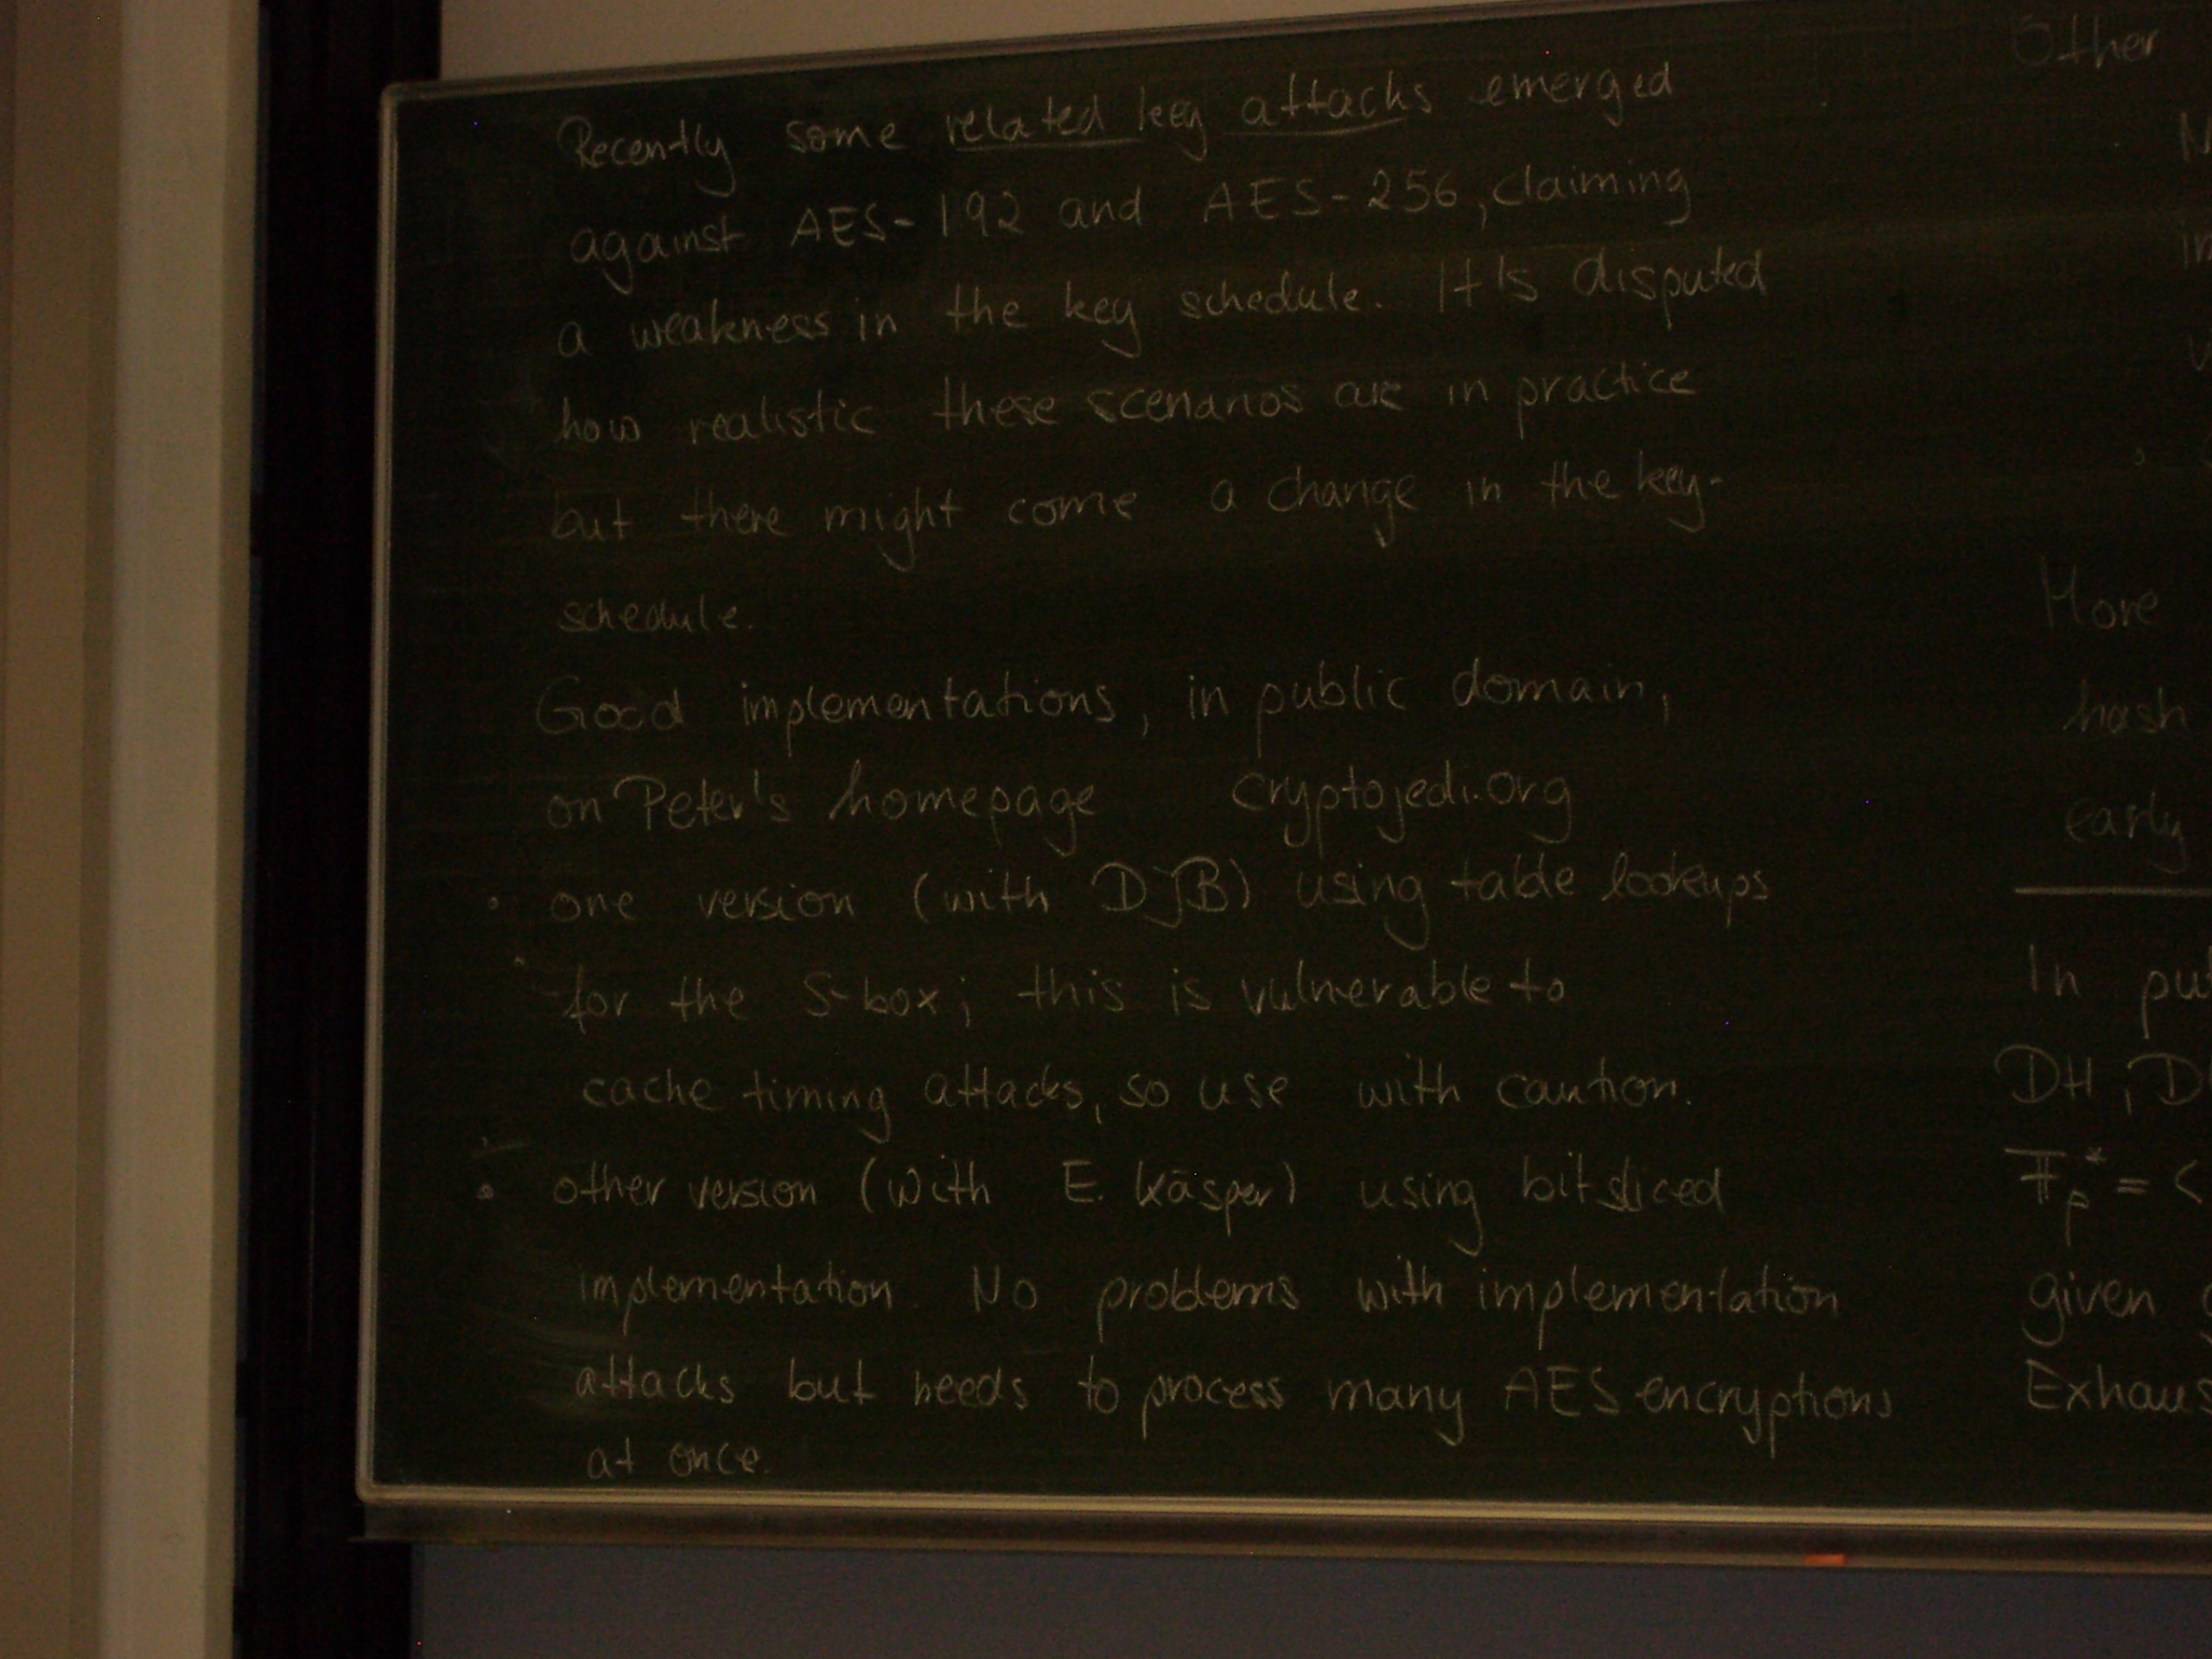 Recently some related key attacks emerged
against AES-192 and AES-256, claiming
a weakness in the key schedule. It is disputed
how realistic these scenarios are in practice
but there might come a change in the key-
schedule.
Good implementations, in public domain,
on Peter's homepage cryptojedi.org
• one version (with DJB) using table lookups
for the S-box; this is vulnerable to
cache timing attacks, so use with caution.
• other version (with E. Käsper) using bitsliced
implementation. No problems with implementation
attacks but needs to process many AES encryptions
at once.
Other
More
hash
early
In pu
DH, D
F_p^* = <
given
Exhaus